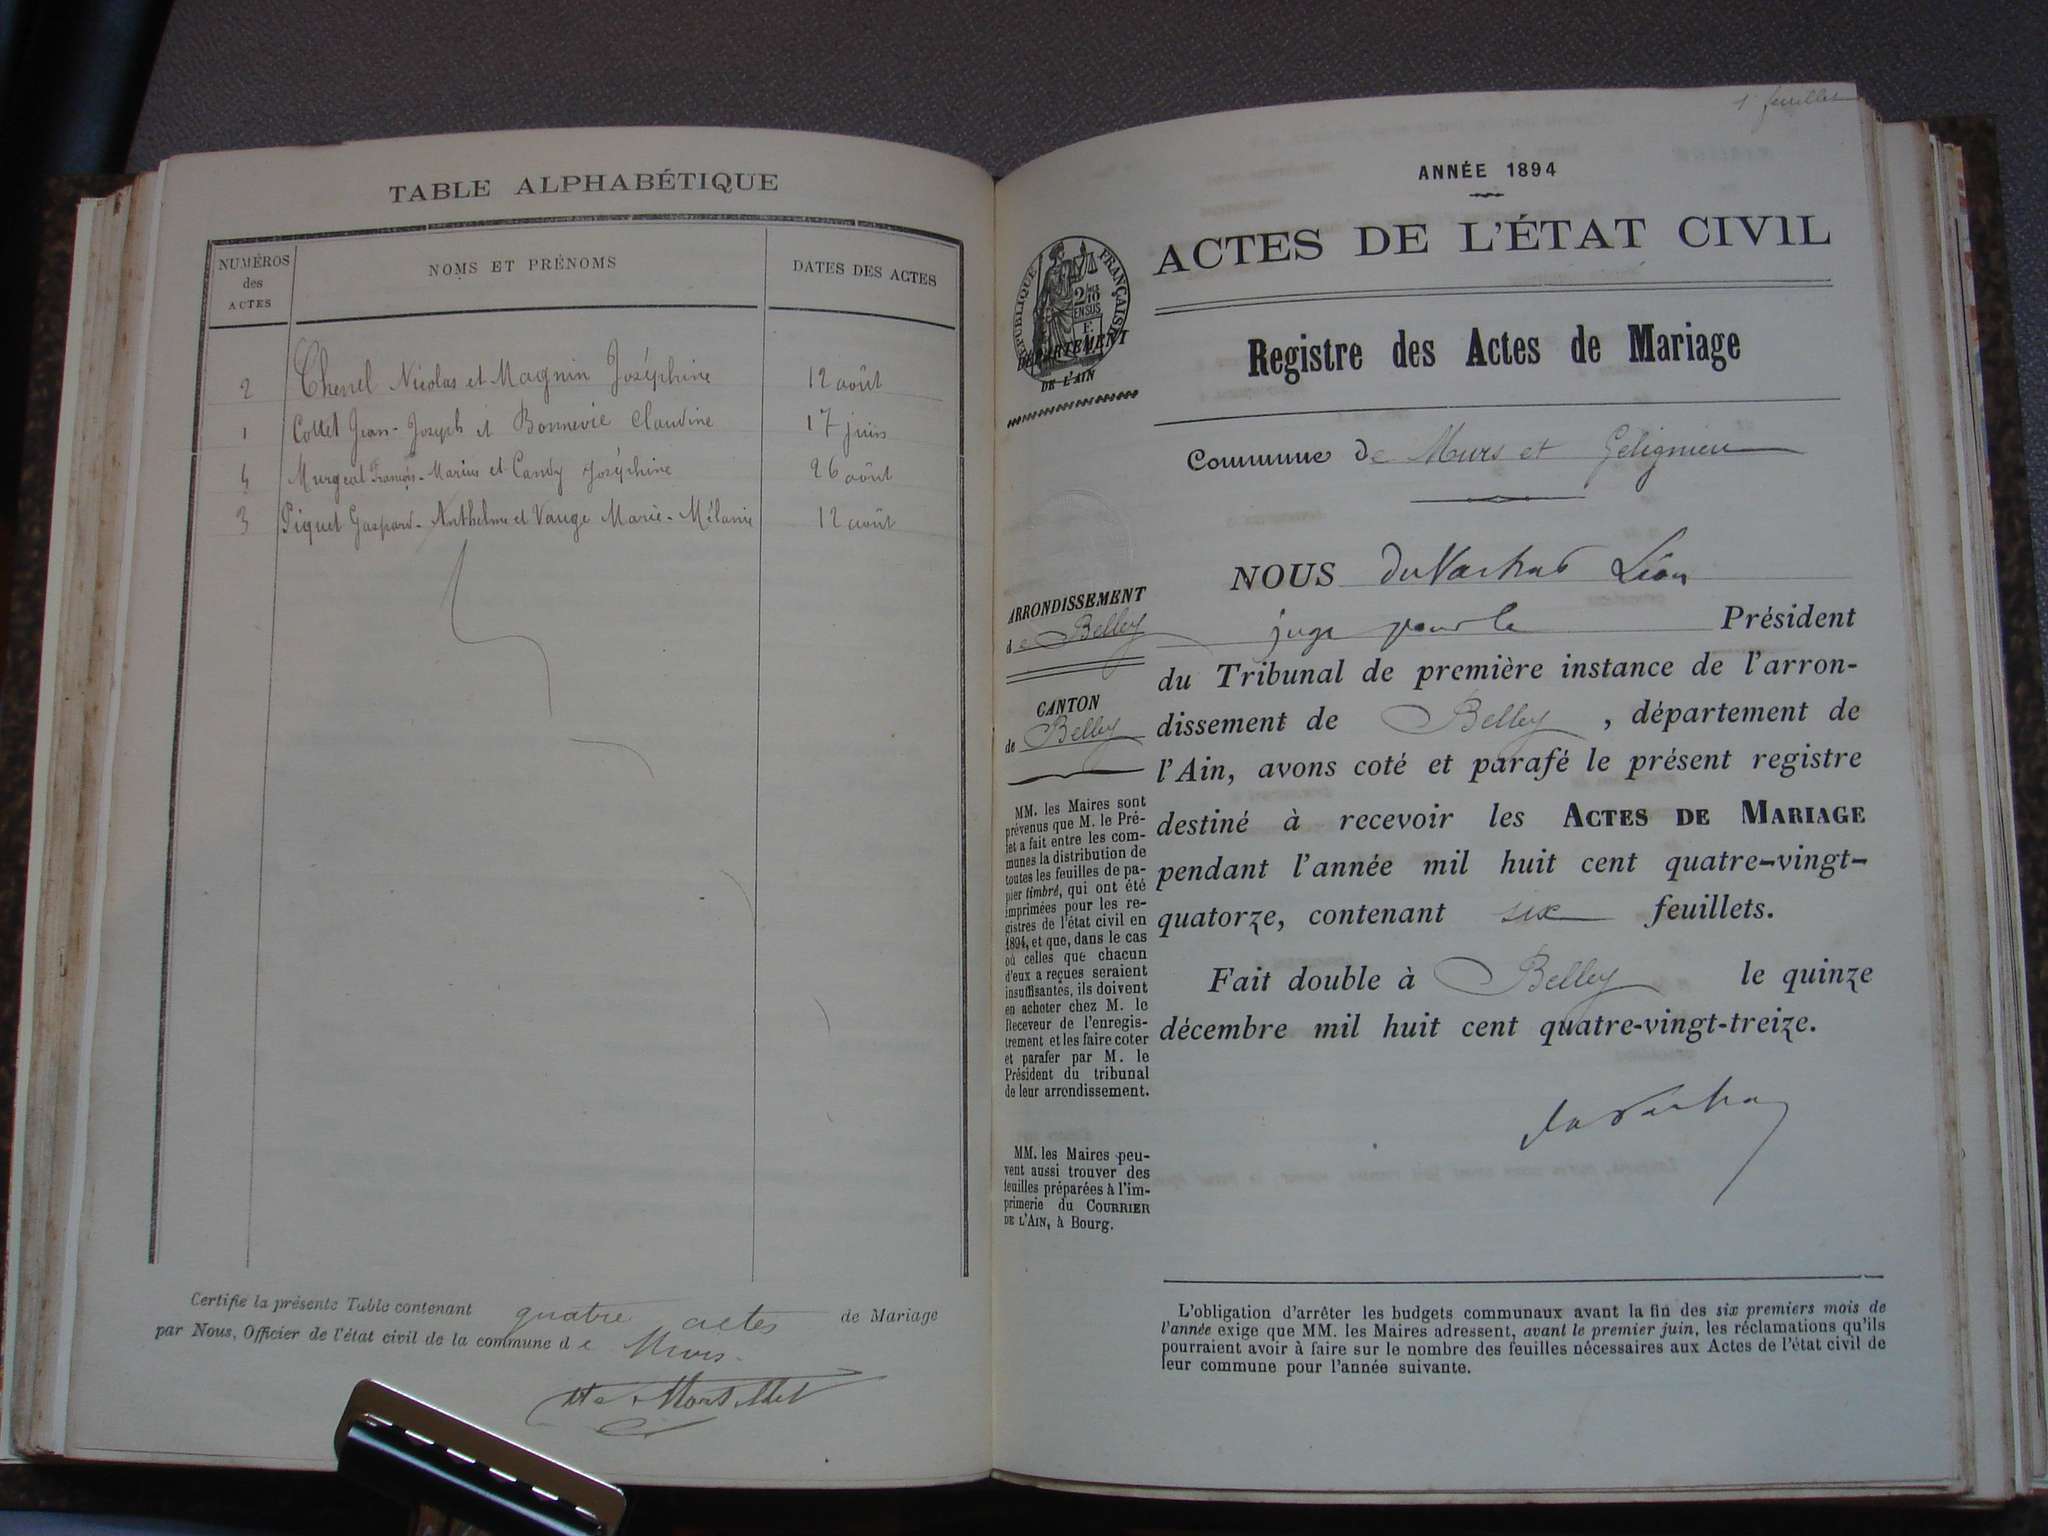 TABLE ALPHABÉTIQUE
NUMÉROS des ACTES
NOMS ET PRÉNOMS
DATES DES ACTES
2 Chenel Nicolas et Magnin Joséphine 12 août
1 Collet Jean-Joseph et Bonnevie Claudine 17 juin
4 François-Marius et Candy Joséphine 26 août
3 Piquet Gaspard-Anthelme et Vauge Marie-Mélanie 12 août
Certifie la présente Table contenant quatre actes de Mariage
par Nous, Officier de l'état civil de la commune de Murs.
1er feuillet
ANNÉE 1894
ACTES DE L'ÉTAT CIVIL
RÉPUBLIQUE FRANÇAISE
2/10
EN SUS
DÉPARTEMENT
DE L'AIN
Registre des Actes de Mariage
Commune de Murs et Gélignieu
ARRONDISSEMENT
de Belley
CANTON
de Belley
MM. les Maires sont
prévenus que M. le Pré-
fet a fait entre les com-
munes la distribution de
toutes les feuilles de pa-
pier timbré, qui ont été
imprimées pour les re-
gistres de l'état civil en
1894, et que, dans le cas
où celles que chacun
d'eux a reçues seraient
insuffisantes, ils doivent
en acheter chez M. le
Receveur de l'enregis-
trement et les faire coter
et parafer par M. le
Président du tribunal
de leur arrondissement.
MM. les Maires peu-
vent aussi trouver des
feuilles préparées à l'im-
primerie du COURRIER
DE L'AIN, à Bourg.
NOUS Léon
juge pour le Président
du Tribunal de première instance de l'arron-
dissement de Belley, département de
l'Ain, avons coté et parafé le présent registre
destiné à recevoir les ACTES DE MARIAGE
pendant l'année mil huit cent quatre-vingt-
quatorze, contenant six feuillets.
Fait double à Belley le quinze
décembre mil huit cent quatre-vingt-treize.
L'obligation d'arrêter les budgets communaux avant la fin des six premiers mois de
l'année exige que MM. les Maires adressent, avant le premier juin, les réclamations qu'ils
pourraient avoir à faire sur le nombre des feuilles nécessaires aux Actes de l'état civil de
leur commune pour l'année suivante.